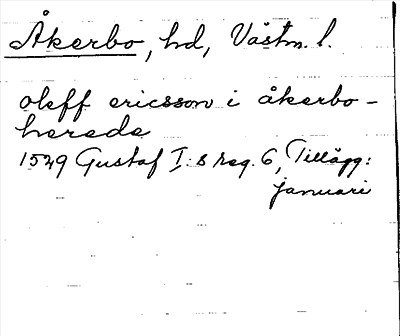 Åkerbo, hd, Västm. l.
oleff ericsson i åkerbo-
herede
1529 Gustaf I:s reg. 6, Tillägg:
januari